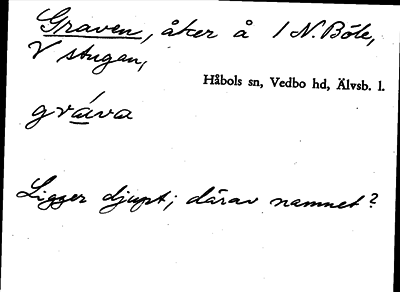 Graven, åker å 1 N. Böle,
V stugan,
Håbols sn, Vedbo hd, Älvsb. l.
gráva
Ligger djupt; därav namnet?